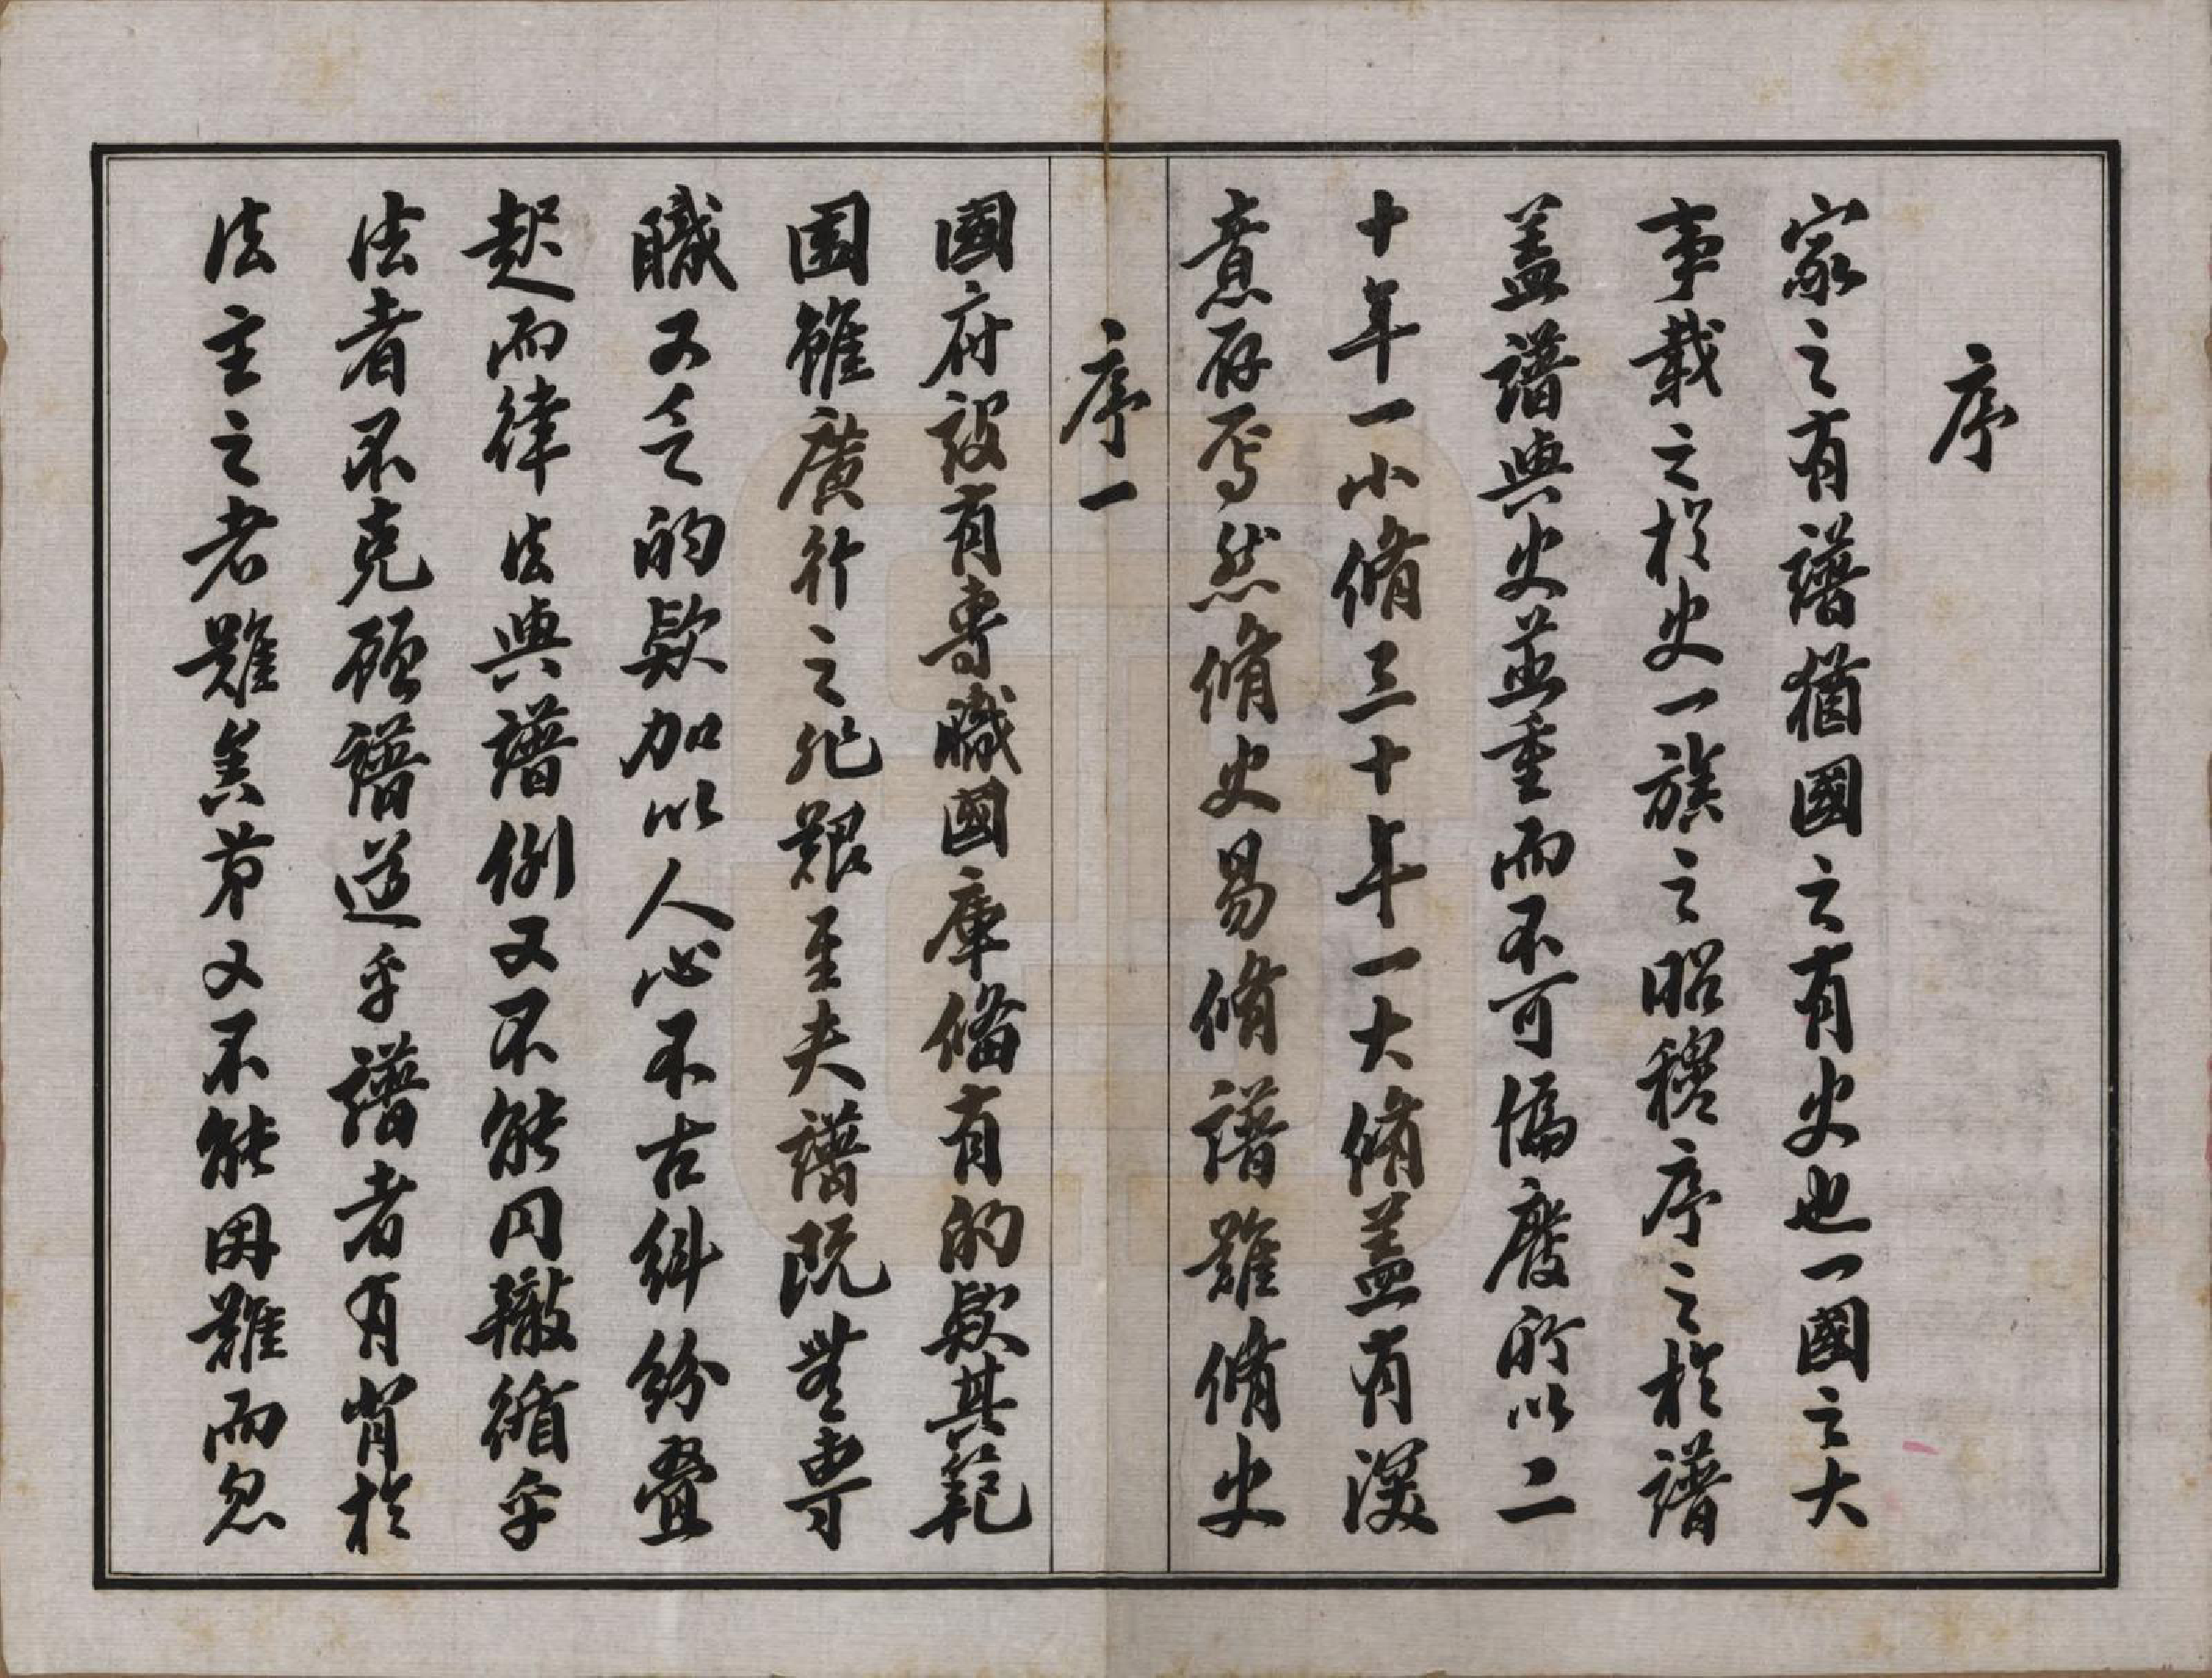 序
家之有譜猶國之有史也一國之大
事載之於史一族之昭穆序之於譜
蓋譜與史並重而不可偏廢所以二
十年一小脩三十年一大脩蓋有深
意存焉然脩史易脩譜難脩史
序一
國府設有專職國庫備有的欵其範
圍雖廣行之非艱至夫譜既無專
職又乏的欵加以人心不古糾紛疊
起而律法與譜例又不能同轍循乎
法者不克顧譜遵乎譜者有背於
法主之者難矣第又不能因難而忽